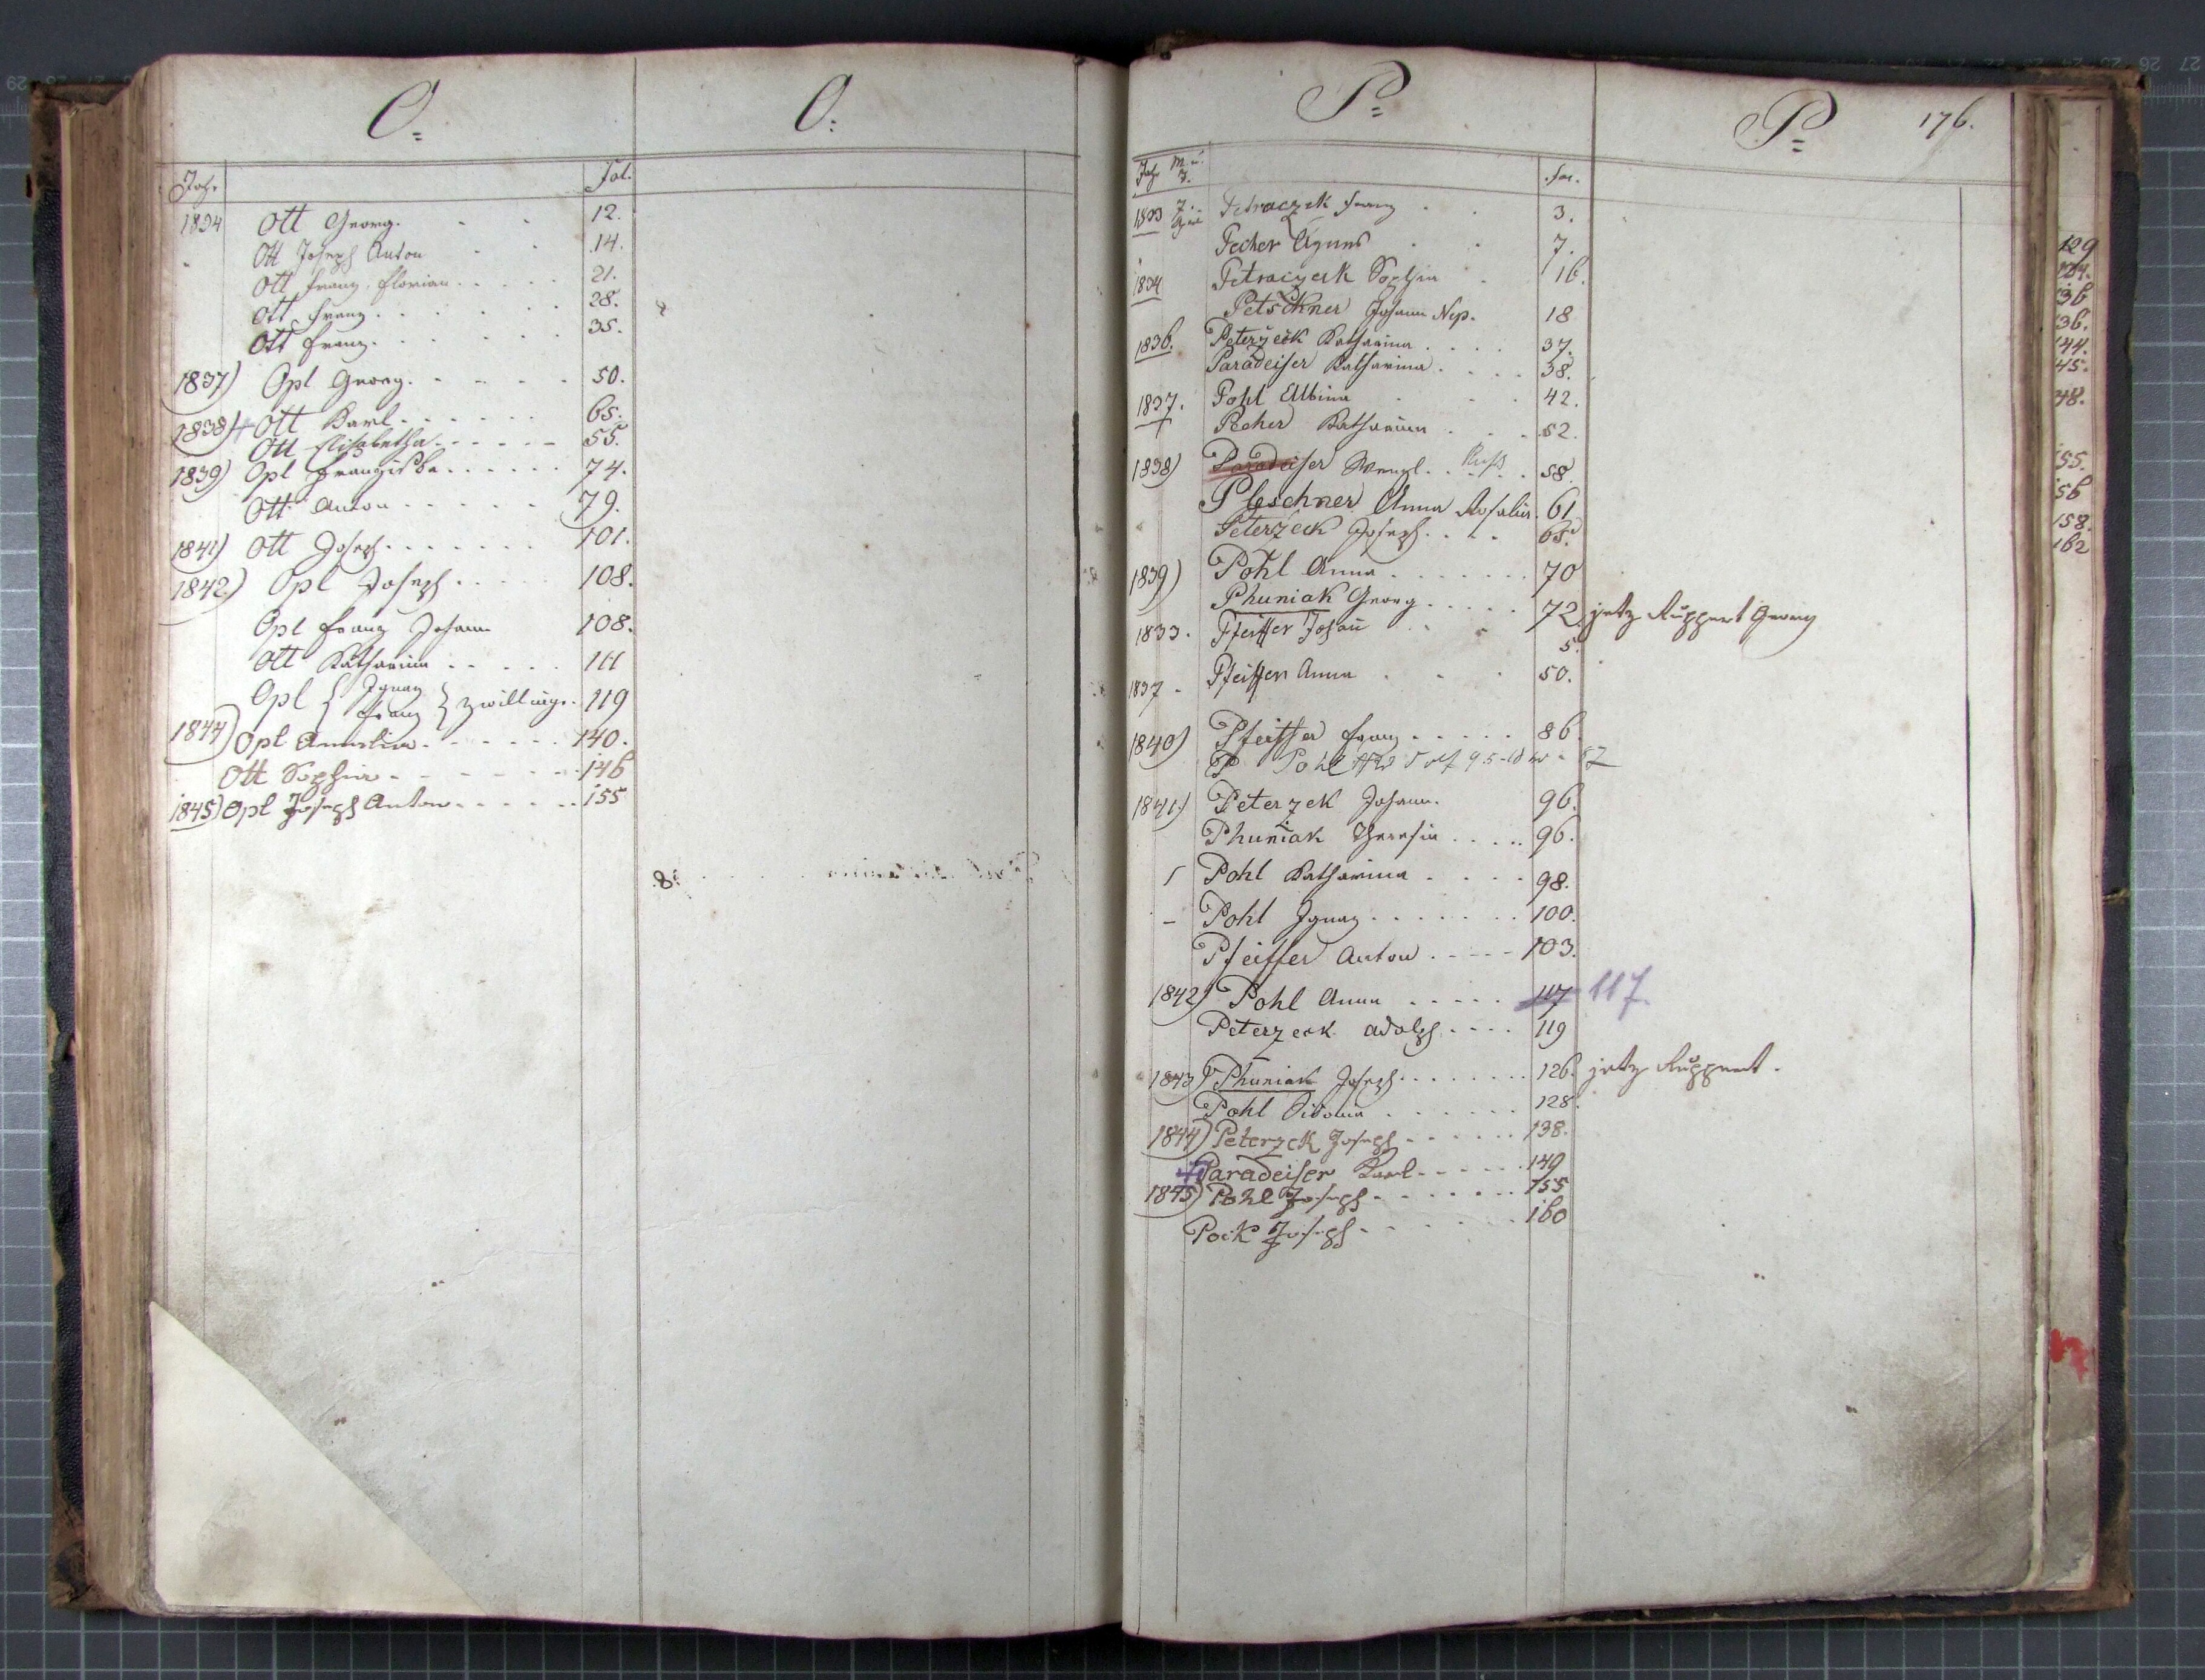 O.
O.
Jahr
Fol.
1834 Ott Georg. 12.
Ott Joseph Anton 14.
Ott Franz Florian 21.
Ott Franz 28.
Ott Franz 35.
1837) Opl Georg. 50.
1838) + Ott Karl 65.
Ott Elisabetha 55.
1839) Opl Franziska 74.
Ott Anton 79.
1841) Ott Joseph 101.
1842) Opl Joseph 108.
Opl Franz Johann 108.
Ott Katharina 111
Opl { Ignaz Franz } Zwillinge. 119
1844) Opl Amalia 140.
Ott Sophia 146
1845) Opl Joseph Anton 155
P.
P.
176.
Jahr
Fol.
1833 Petraczek Franz 3.
Pecher Agnes 7.
1834 Petraczek Sophia 16.
Petschner Johann Nep. 18
1836. Peterzeck Katharina 37.
Paradeiser Katharina 38.
1837. Pohl Albina 42.
Pecher Katharina 52.
1838) Paradeiser Wenzl 58.
Pleschner Anna Rosalia 61
Peterzeck Joseph 65.
1839) Pohl Anna 70
Phuniak Georg 72. jetz Ruppert Georg
1833. Pfeiffer Johañ 5.
1837 Pfeiffer Anna 50.
1840) Pfeiffer Franz 86.
P Pohl
1841) Peterzek Johann. 96.
Phuniak Theresia 96.
Pohl Katharina 98.
- Pohl Ignaz 100.
Pfeiffer Anton 103.
1842) Pohl Anna 117 117.
Peterzeck Adolph 119
1843) Phuniak Joseph 126. jetz Ruppert.
Pohl Sidonia 128.
1844) Peterzek Joseph 138.
+ Paradeiser Karl 149
1845) Pohl Joseph 155
Pock Joseph 160
129
136
136.
144.
145.
148.
155.
156
158.
162